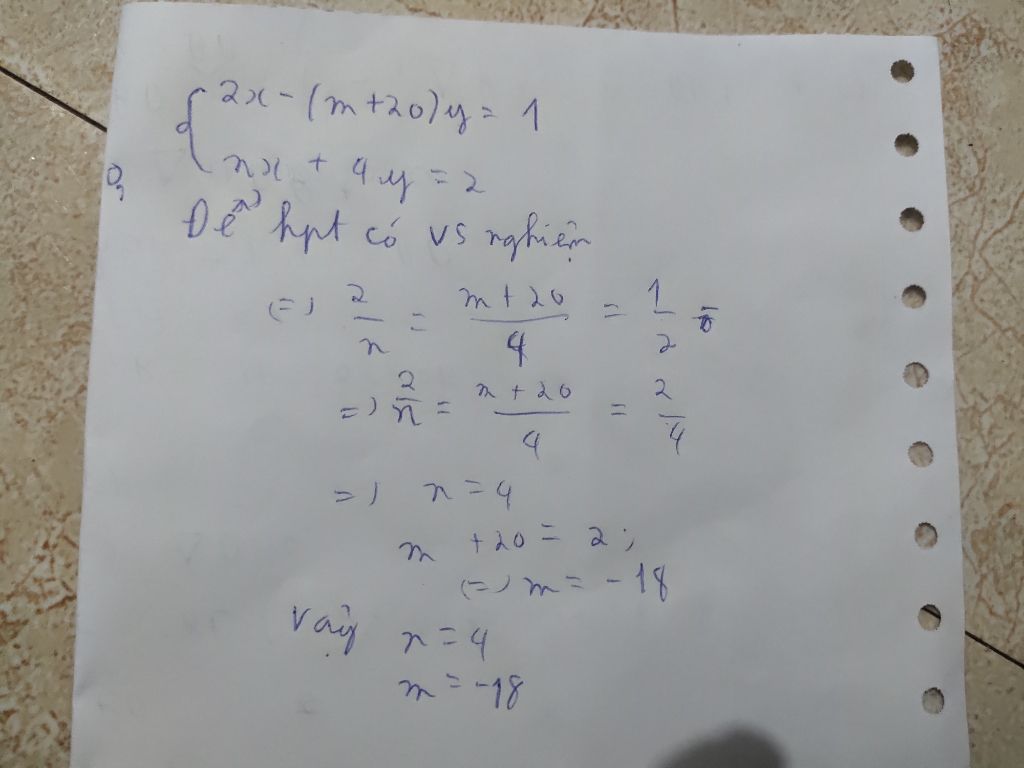 { 2x - (m+20)y = 1
nx + 4y = 2
Để hpt có vs nghiệm
(=) 2/n = m+20/4 = 1/2
=) 2/n = m+20/4 = 2/4
=) n = 4
m +20 = 2;
(=) m = -18
Vậy n = 4
m = -18